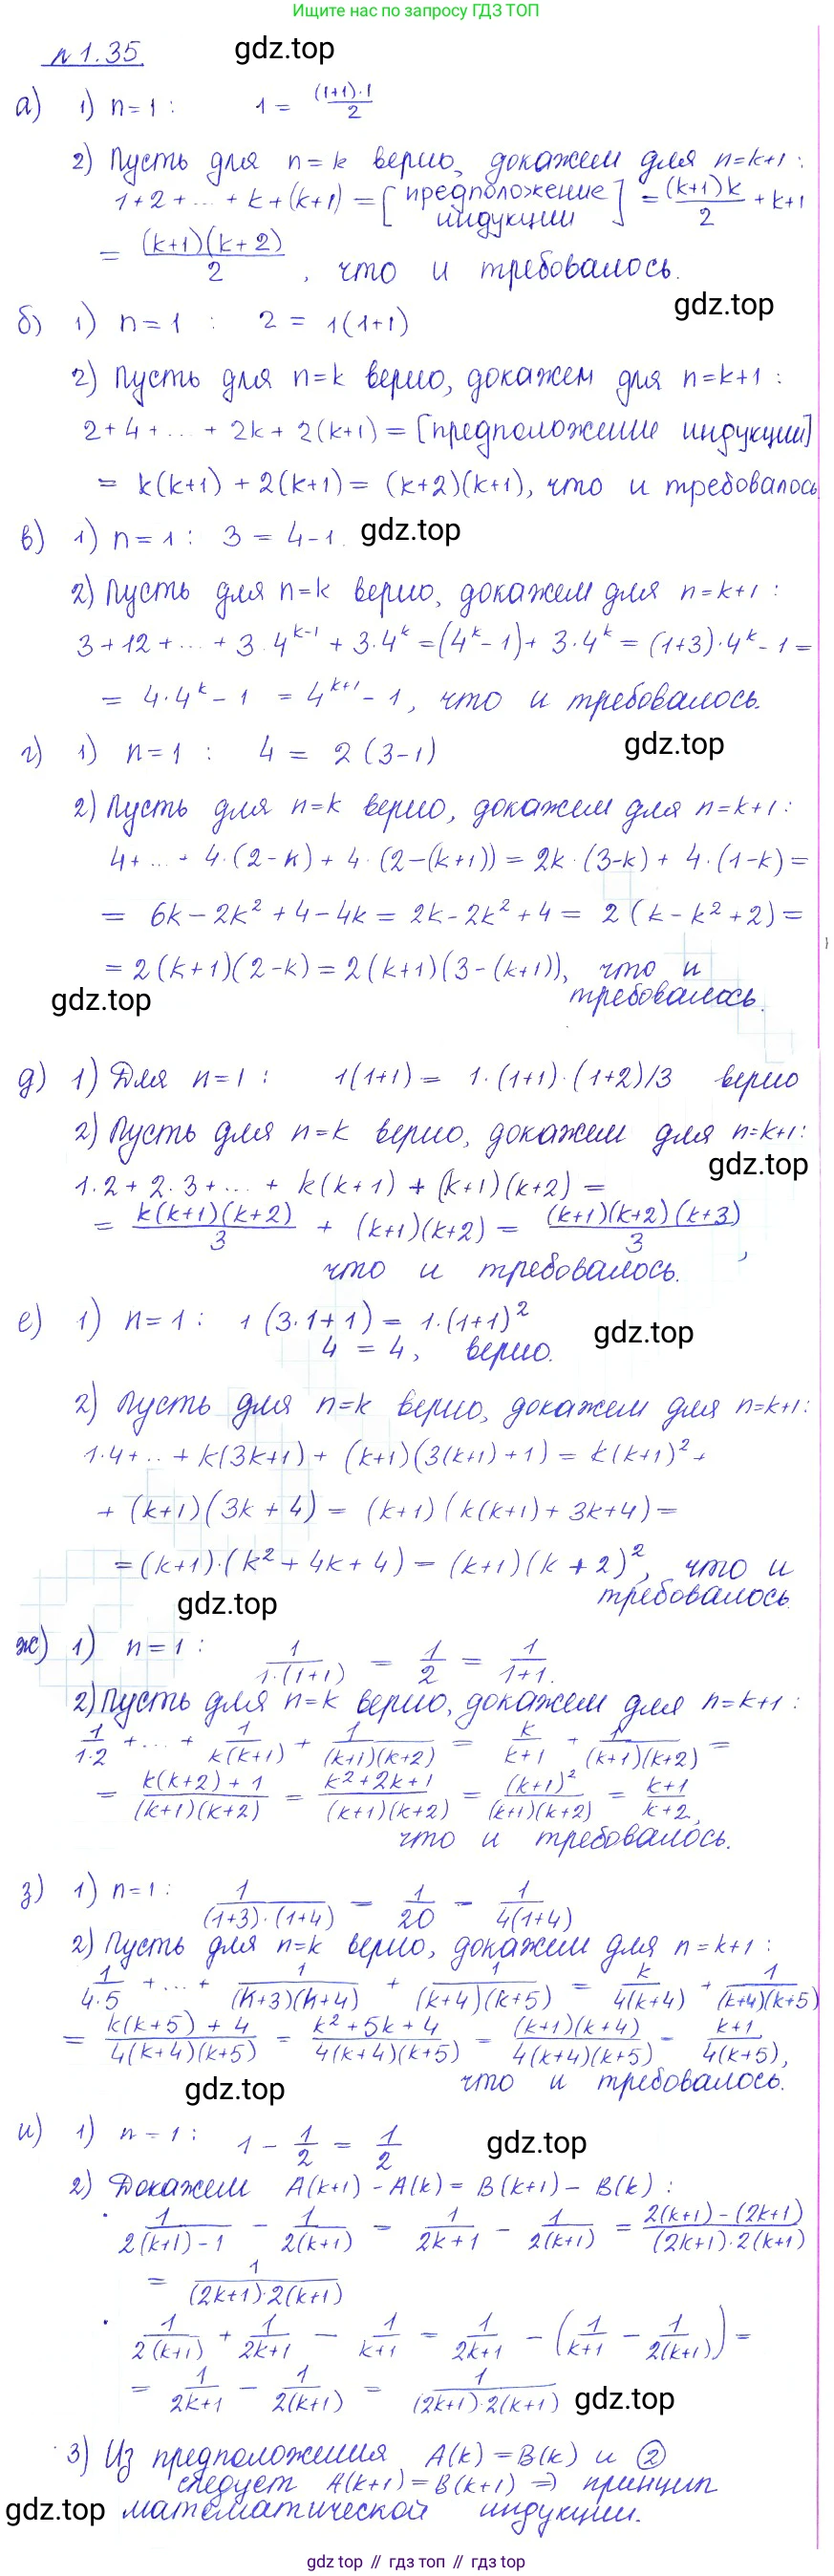 Ищите нас по запросу ГДЗ ТОП
№1.35. gdz.top
а) 1) n=1: 1 = (1+1)·1/2
2) Пусть для n=k верно, докажем для n=k+1:
1+2+...+k+(k+1) = [предположение индукции] = (k+1)k/2 + k+1
= (k+1)(k+2)/2, что и требовалось.
gdz.top
б) 1) n=1 : 2 = 1(1+1)
2) Пусть для n=k верно, докажем для n=k+1:
2+4+...+2k+2(k+1) = [предположение индукции]
= k(k+1)+2(k+1) = (k+2)(k+1), что и требовалось
в) 1) n=1: 3 = 4-1. gdz.top
2) Пусть для n=k верно, докажем для n=k+1:
3+12+...+3·4^(k-1)+3·4^k = (4^k-1)+3·4^k = (1+3)·4^k-1 =
= 4·4^k-1 = 4^(k+1)-1, что и требовалось.
г) 1) n=1 : 4 = 2(3-1) gdz.top
2) Пусть для n=k верно, докажем для n=k+1:
4+...+4·(2-k)+4·(2-(k+1)) = 2k·(3-k)+4·(1-k) =
= 6k-2k²+4-4k = 2k-2k²+4 = 2(k-k²+2) =
= 2(k+1)(2-k) = 2(k+1)(3-(k+1)), что и
gdz.top требовалось.
д) 1) Для n=1: 1(1+1) = 1·(1+1)·(1+2)/3 верно
2) Пусть для n=k верно, докажем для n=k+1:
gdz.top
1·2+2·3+...+k(k+1)+(k+1)(k+2) =
= k(k+1)(k+2)/3 + (k+1)(k+2) = (k+1)(k+2)(k+3)/3,
что и требовалось.
е) 1) n=1: 1(3·1+1) = 1·(1+1)²
gdz.top
4 = 4, верно.
2) Пусть для n=k верно, докажем для n=k+1:
1·4+..+k(3k+1)+(k+1)(3(k+1)+1) = k(k+1)²+
+(k+1)(3k+4) = (k+1)(k(k+1)+3k+4) =
= (k+1)·(k²+4k+4) = (k+1)(k+2)², что и
gdz.top требовалось.
ж) 1) n=1: 1/(1·(1+1)) = 1/2 = 1/(1+1).
2) Пусть для n=k верно, докажем для n=k+1:
1/(1·2)+...+1/(k(k+1))+1/((k+1)(k+2)) = k/(k+1)+1/((k+1)(k+2)) =
= (k(k+2)+1)/((k+1)(k+2)) = (k²+2k+1)/((k+1)(k+2)) = (k+1)²/((k+1)(k+2)) = (k+1)/(k+2),
что и требовалось.
з) 1) n=1: 1/((1+3)·(1+4)) = 1/20 = 1/(4(1+4))
2) Пусть для n=k верно, докажем для n=k+1:
1/(4·5)+...+1/((k+3)(k+4))+1/((k+4)(k+5)) = k/(4(k+4))+1/((k+4)(k+5))
= (k(k+5)+4)/(4(k+4)(k+5)) = (k²+5k+4)/(4(k+4)(k+5)) = (k+1)(k+4)/(4(k+4)(k+5)) = (k+1)/(4(k+5)),
gdz.top что и требовалось.
и) 1) n=1: 1-1/2 = 1/2 gdz.top
2) Докажем A(k+1)-A(k) = B(k+1)-B(k):
· 1/(2(k+1)-1) - 1/(2(k+1)) = 1/(2k+1) - 1/(2(k+1)) = (2(k+1)-(2k+1))/((2k+1)·2(k+1))
= 1/((2k+1)·2(k+1))
· 1/(2(k+1)) + 1/(2k+1) - 1/(k+1) = 1/(2k+1) - (1/(k+1) - 1/(2(k+1))) =
= 1/(2k+1) - 1/(2(k+1)) = 1/((2k+1)·2(k+1)) gdz.top
3) Из предположения A(k)=B(k) и ②
следует A(k+1)=B(k+1) ⇒ принцип
gdz.top математической индукции.
gdz top // гдз топ // гдз top